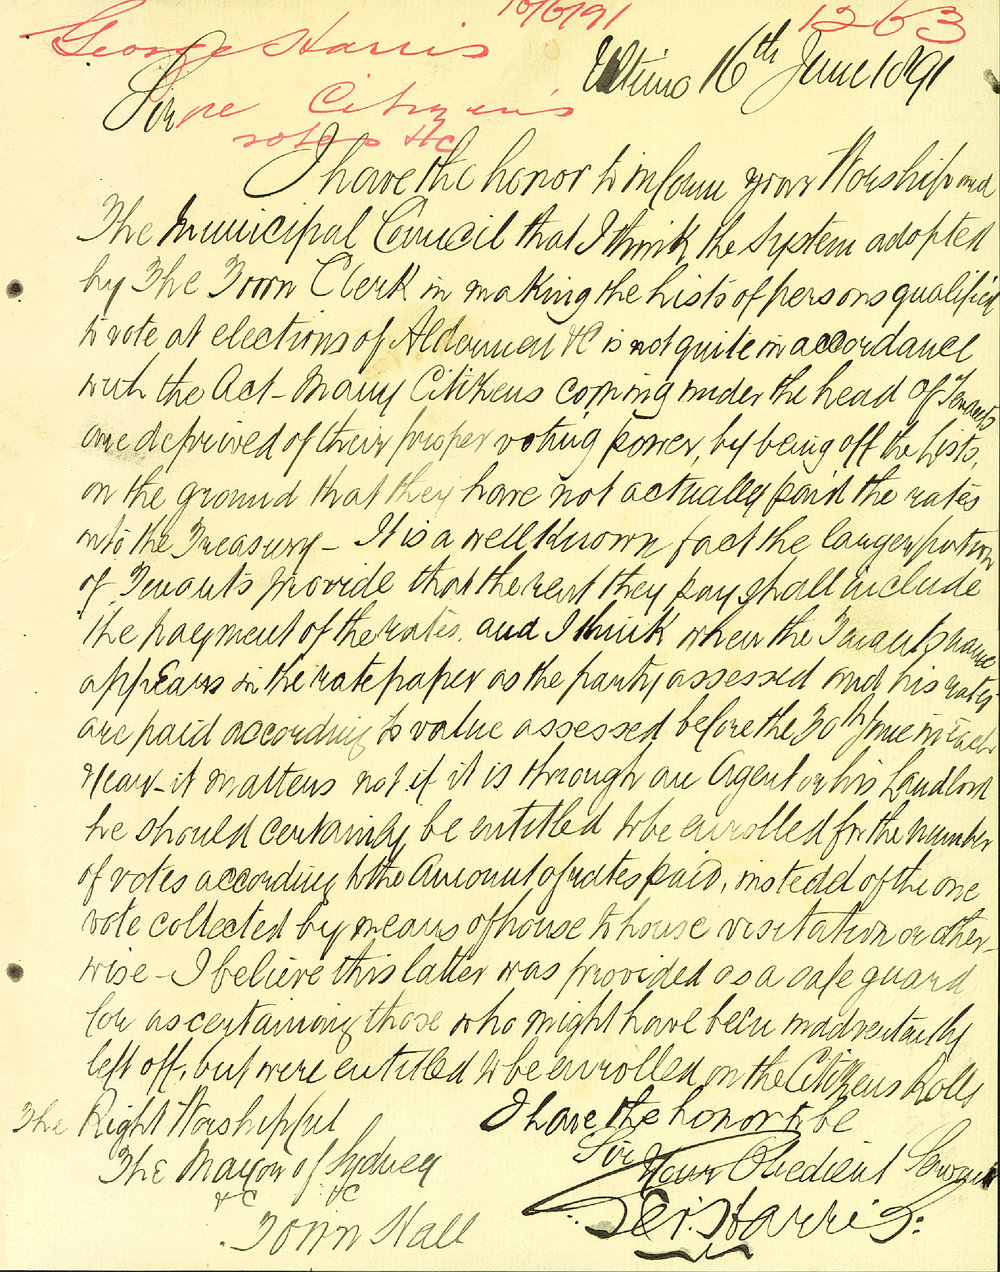 16/6/91
1263
George Harris
Ultimo 16th June 1891
Sir
re Citizen's
votes &c
I have the honor to inform your Worship and
The Municipal Council that I think the System adopted
by The Town Clerk in making the lists of persons qualified
to vote at elections of Aldermen &c is not quite in accordance
with the Act - Many Citizens coming under the head of Tenants
are deprived of their proper voting power, by being off the Lists,
on the ground that they have not actually paid the rates
into the Treasury - It is a well known fact the larger portion
of Tenants provide that the rent they pay shall include
the payment of the rates, and I think when the Tenants name
appears in the rate paper as the party assessed and his rates
are paid according to value assessed before the 30th June in Each
Year - it matters not if it is through an Agent or his Landlord
he should certainly be entitled to be enrolled for the number
of votes according to the Amount of rates paid, instedd of the one
vote collected by means of house to house visitation or other-
wise - I believe this latter was provided as a safe guard
for ascertaining those who might have been inadvertantly
left off, but were entitled to be enrolled on the Citizens Rolls
I have the honor to be
Sir
Your Obedient Servant
Geo. Harris
The Right Worshipful
The Mayor of Sydney
&c &c
Town Hall